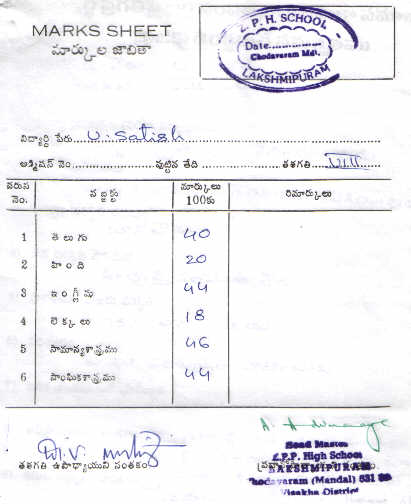 MARKS SHEET
మార్కుల జాబితా
Z.P.H. SCHOOL
Date
Chodavaram Mdl.
LAKSHMIPURAM
విద్యార్థి పేరు U. Satish
అడ్మిషన్ నెం. పుట్టిన తేది తరగతి VIII
వరుస నెం. సబ్జక్టు మార్కులు 100కు రిమార్కులు
1 తెలుగు 40
2 హింది 20
3 ఇంగ్లీషు 44
4 లెక్కలు 18
5 సామాన్యశాస్త్రము 46
6 సాంఘికశాస్త్రము 44
తరగతి ఉపాధ్యాయుని సంతకం
Head Master
Z.P.P. High School
LAKSHMIPURAM
Chodavaram (Mandal) 531
Visakha District